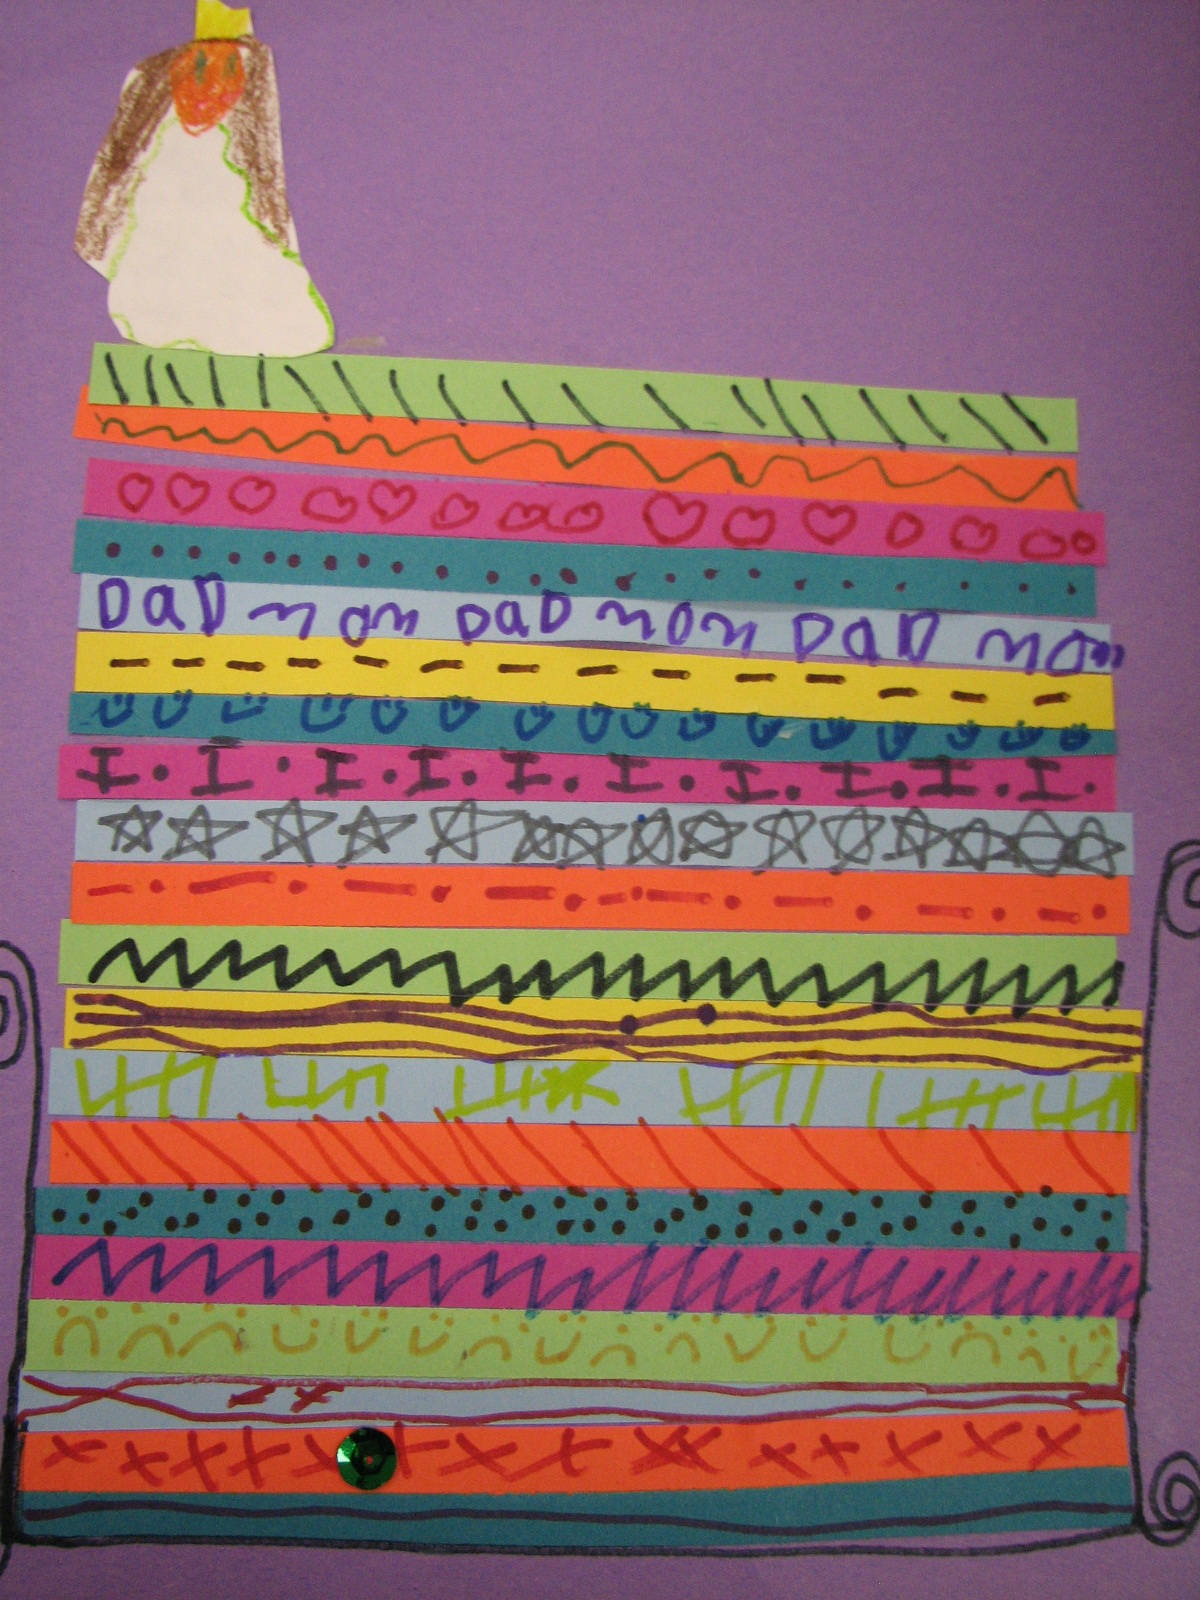 DaD mom DaD mom DaD mom